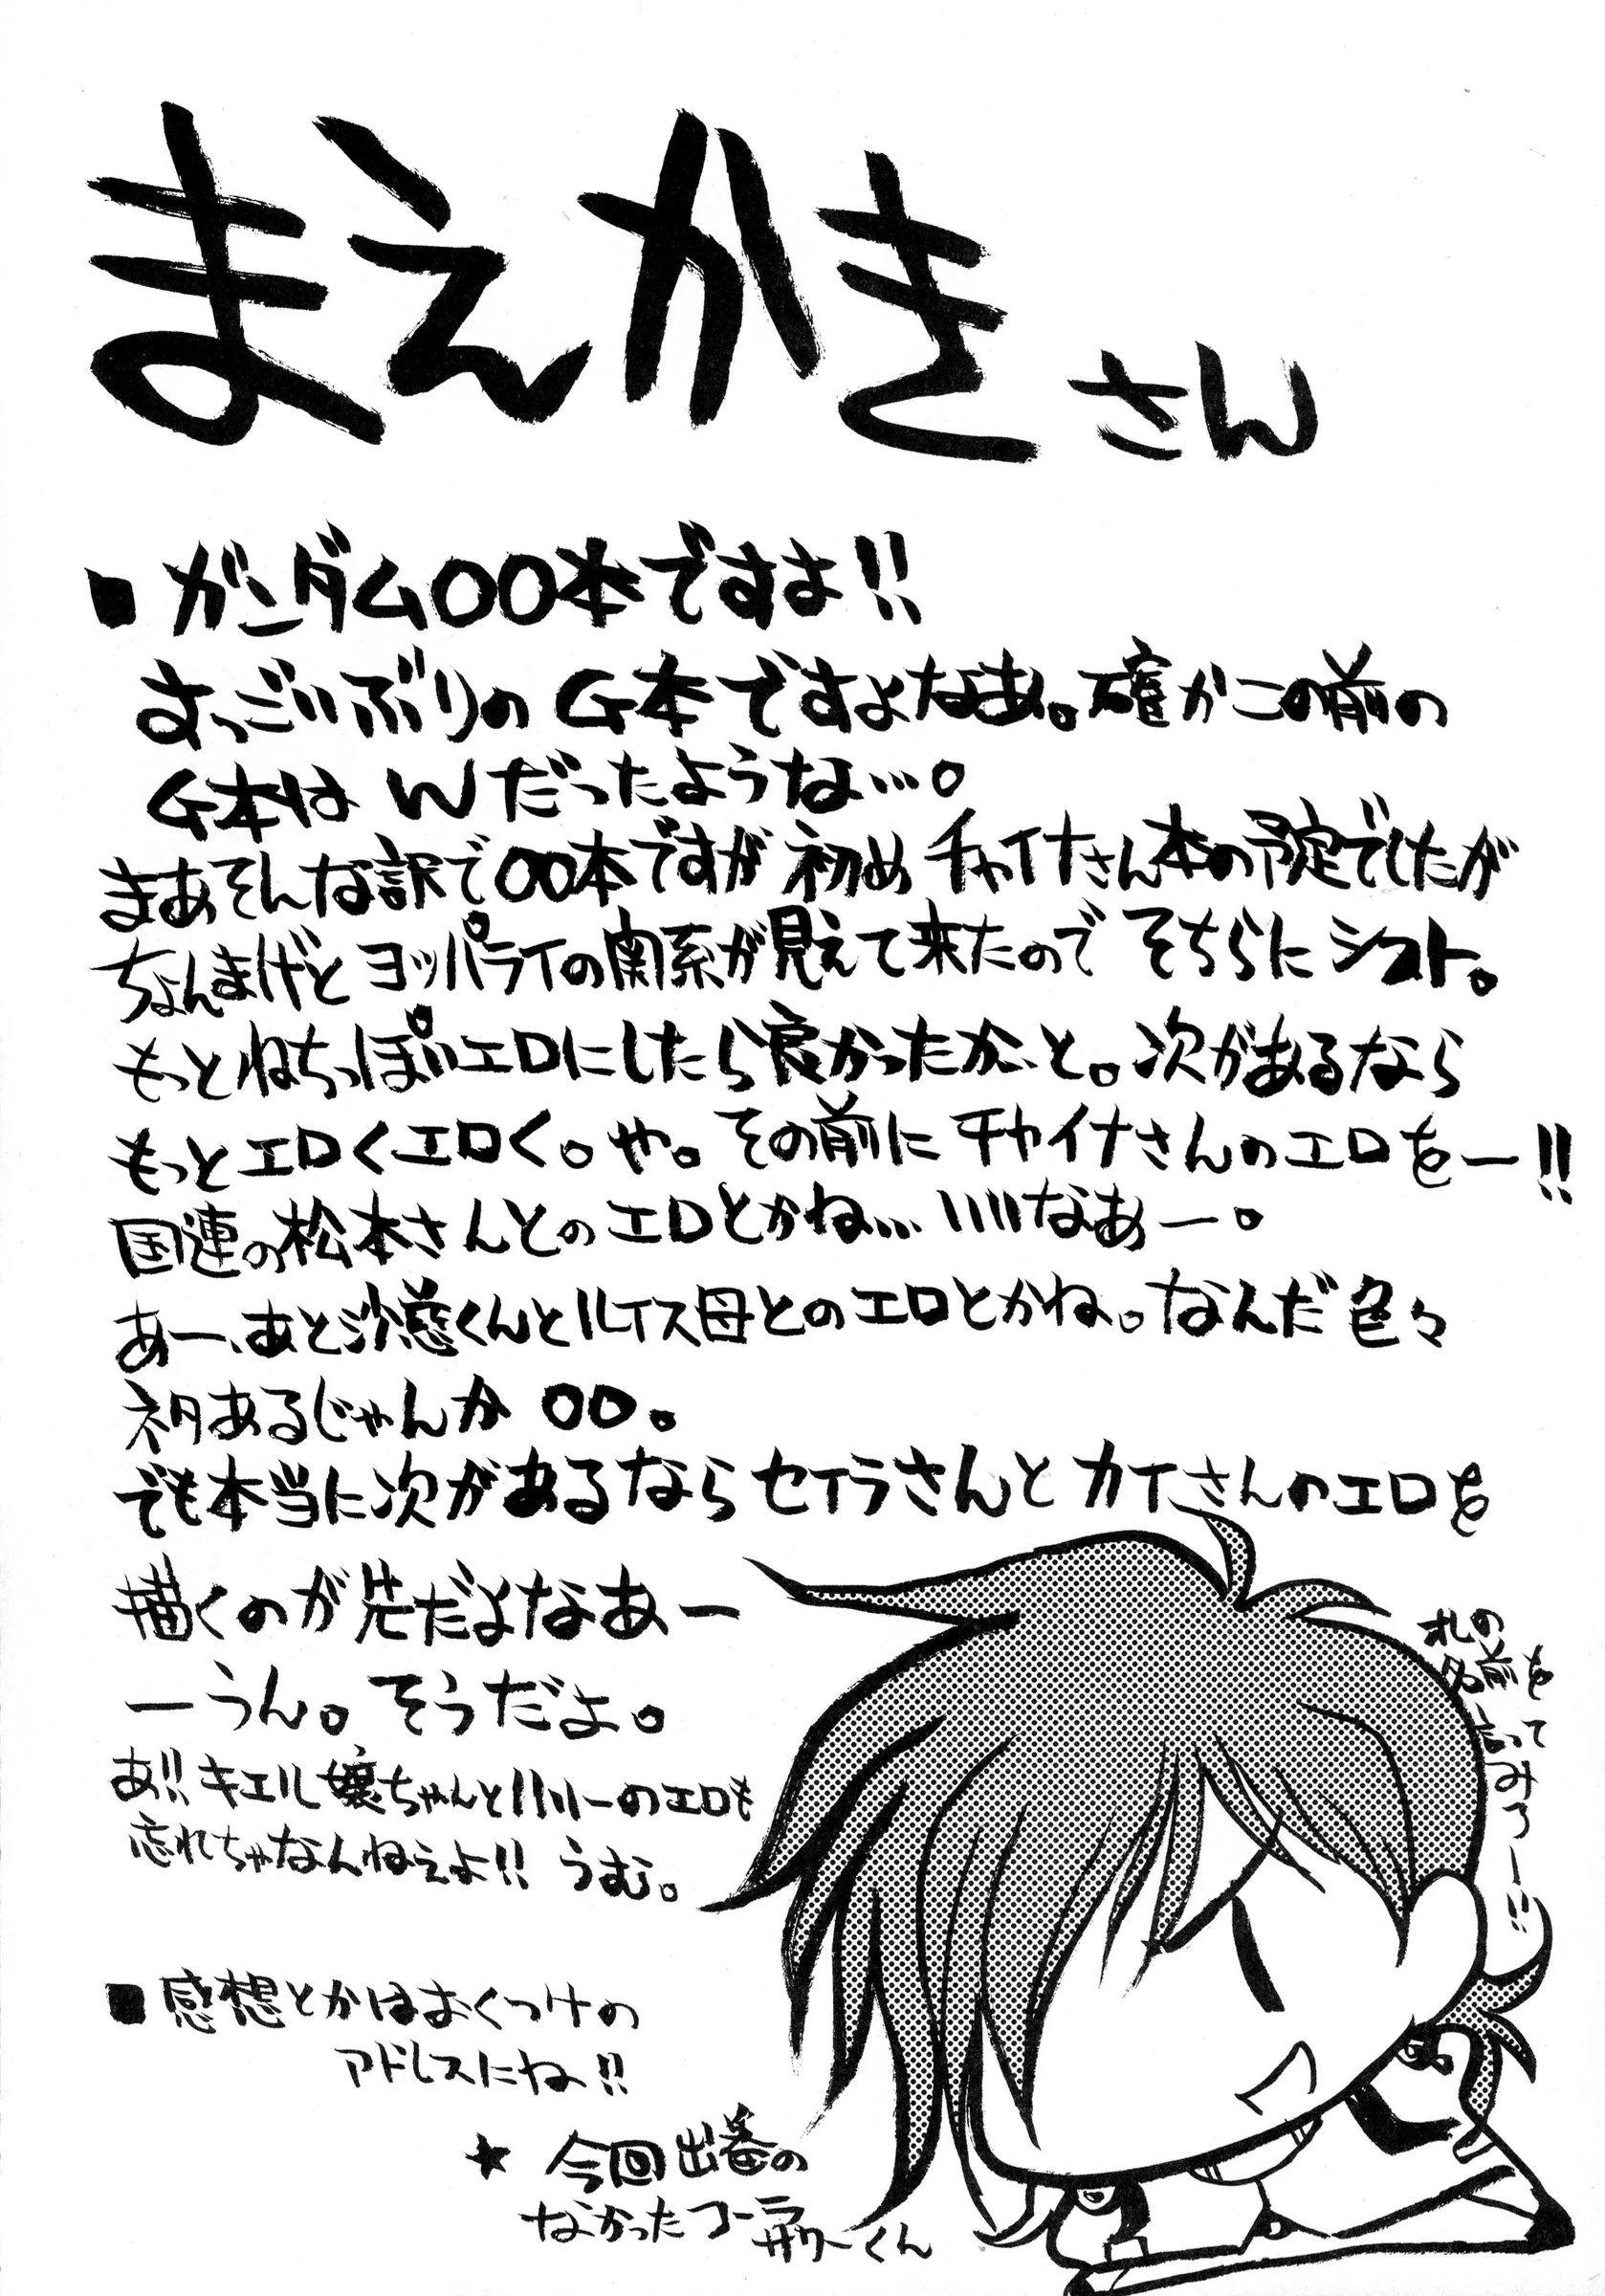 まえかきさん
■ ガンダム○○本ですよ!!
すっごいぶりの G本ですよなあ。確かこの前の
G本は Wだったような…。
まあそんな訳で○○本ですが 初め チャイナさん本の予定でしたが
ちょんまげと ヨッパライの関系が見えて来たので そちらに シフト。
もっと ねちっぽいエロにしたら良かったかと。次があるなら
もっと エロくエロく。や。その前に チャイナさんのエロをー!!
国連の松本さんとの エロとかね… いいなあー。
あー、あと沙慈くんとルイス母とのエロとかね。なんだ色々
ネタあるじゃんか ○○。
でも本当に次があるなら セイラさんと カイさんのエロを
描くのが先だよなあー
ーうん。そうだよ。
あ!! キエル嬢ちゃんとハリーのエロも
忘れちゃなんねぇよ!! うむ。
オレの
名前を
言って
みろー!!
■ 感想とかはおくつけの
アドレスにね!!
★ 今回出番の
なかった コーラ
サワーくん